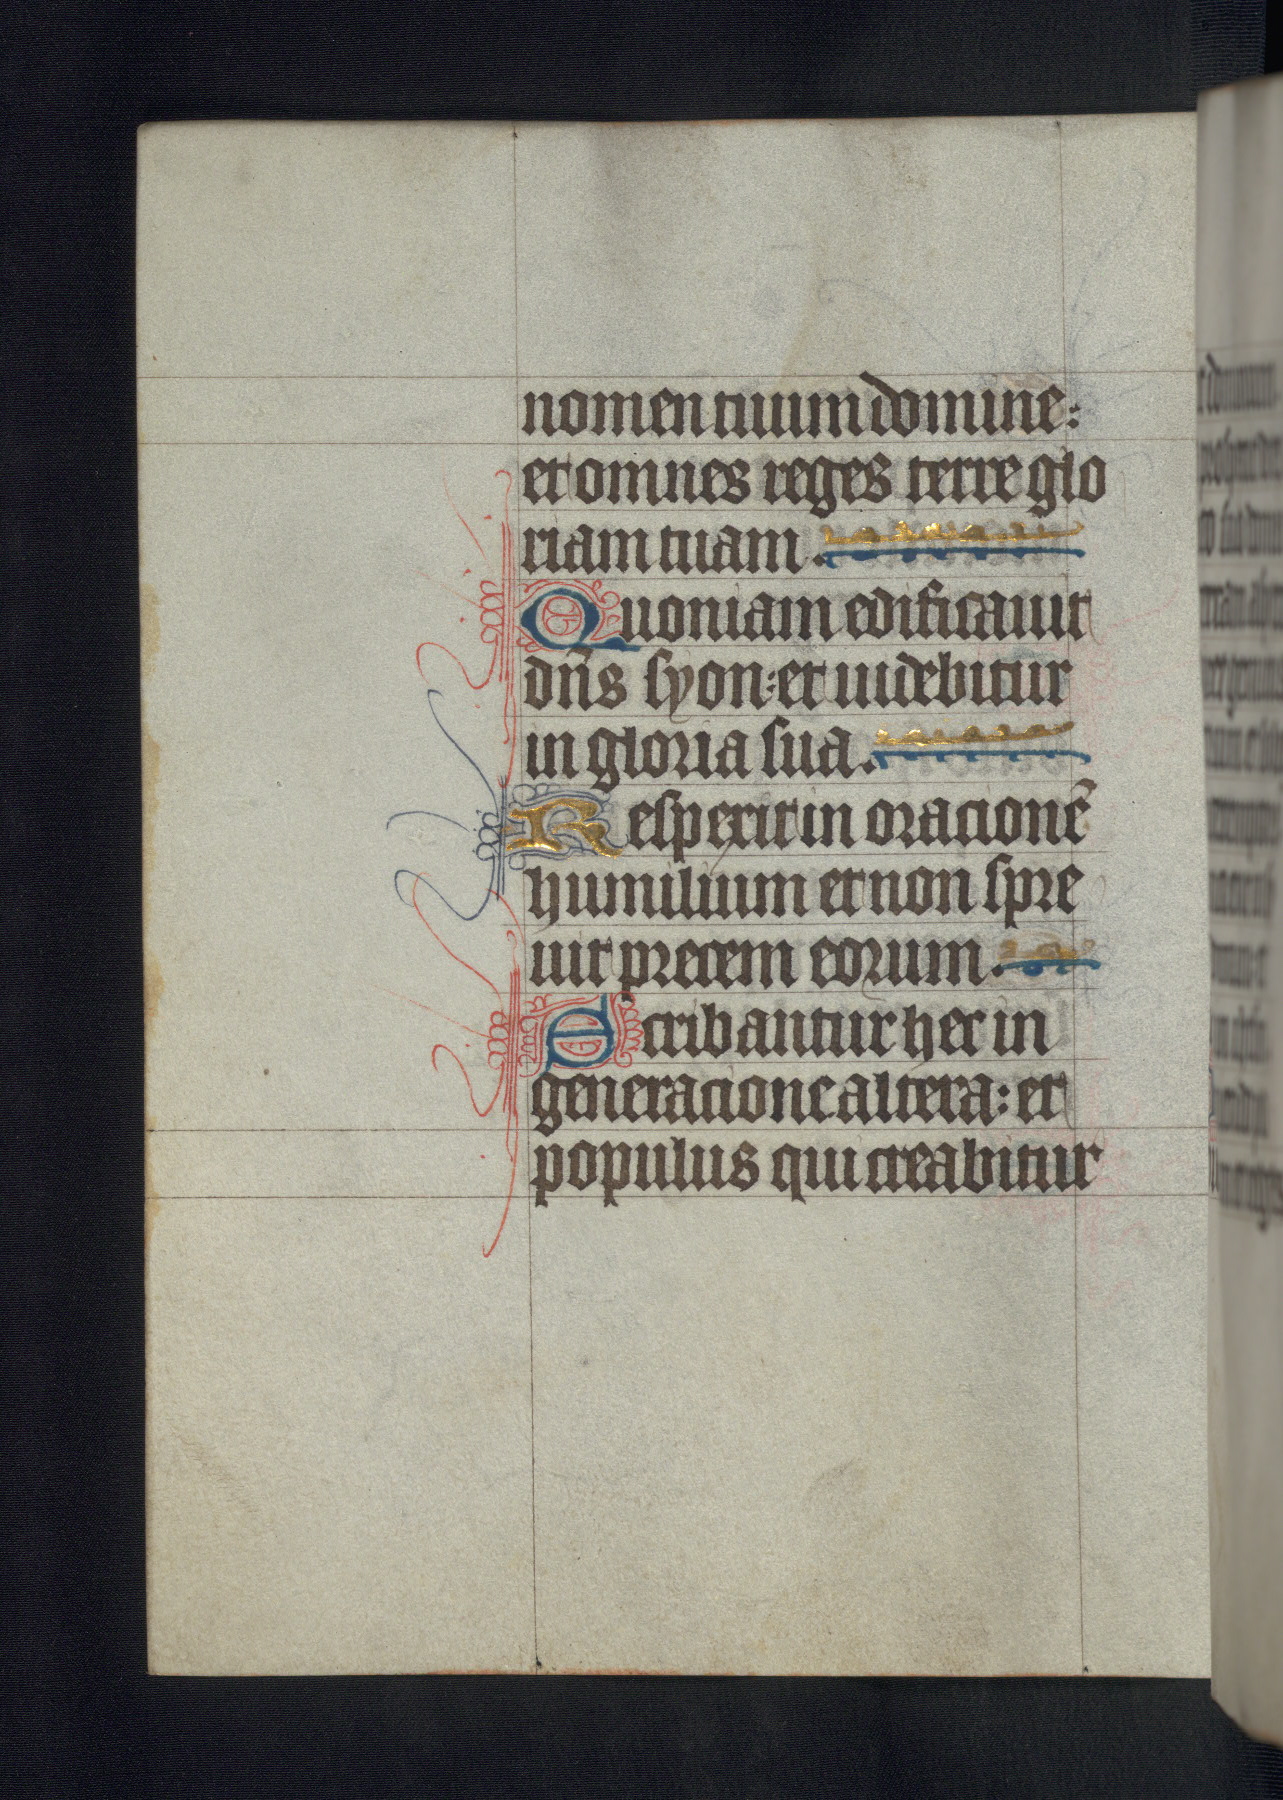 nomen tuum domine:
et omnes reges terre glo
riam tuam.
Quoniam edificauit
dn̄s syon: et uidebitur
in gloria sua.
Respexit in oracionē
humilium et non spre
uit precem eorum.
Scribantur hec in
generacione altera: et
populus qui creabitur